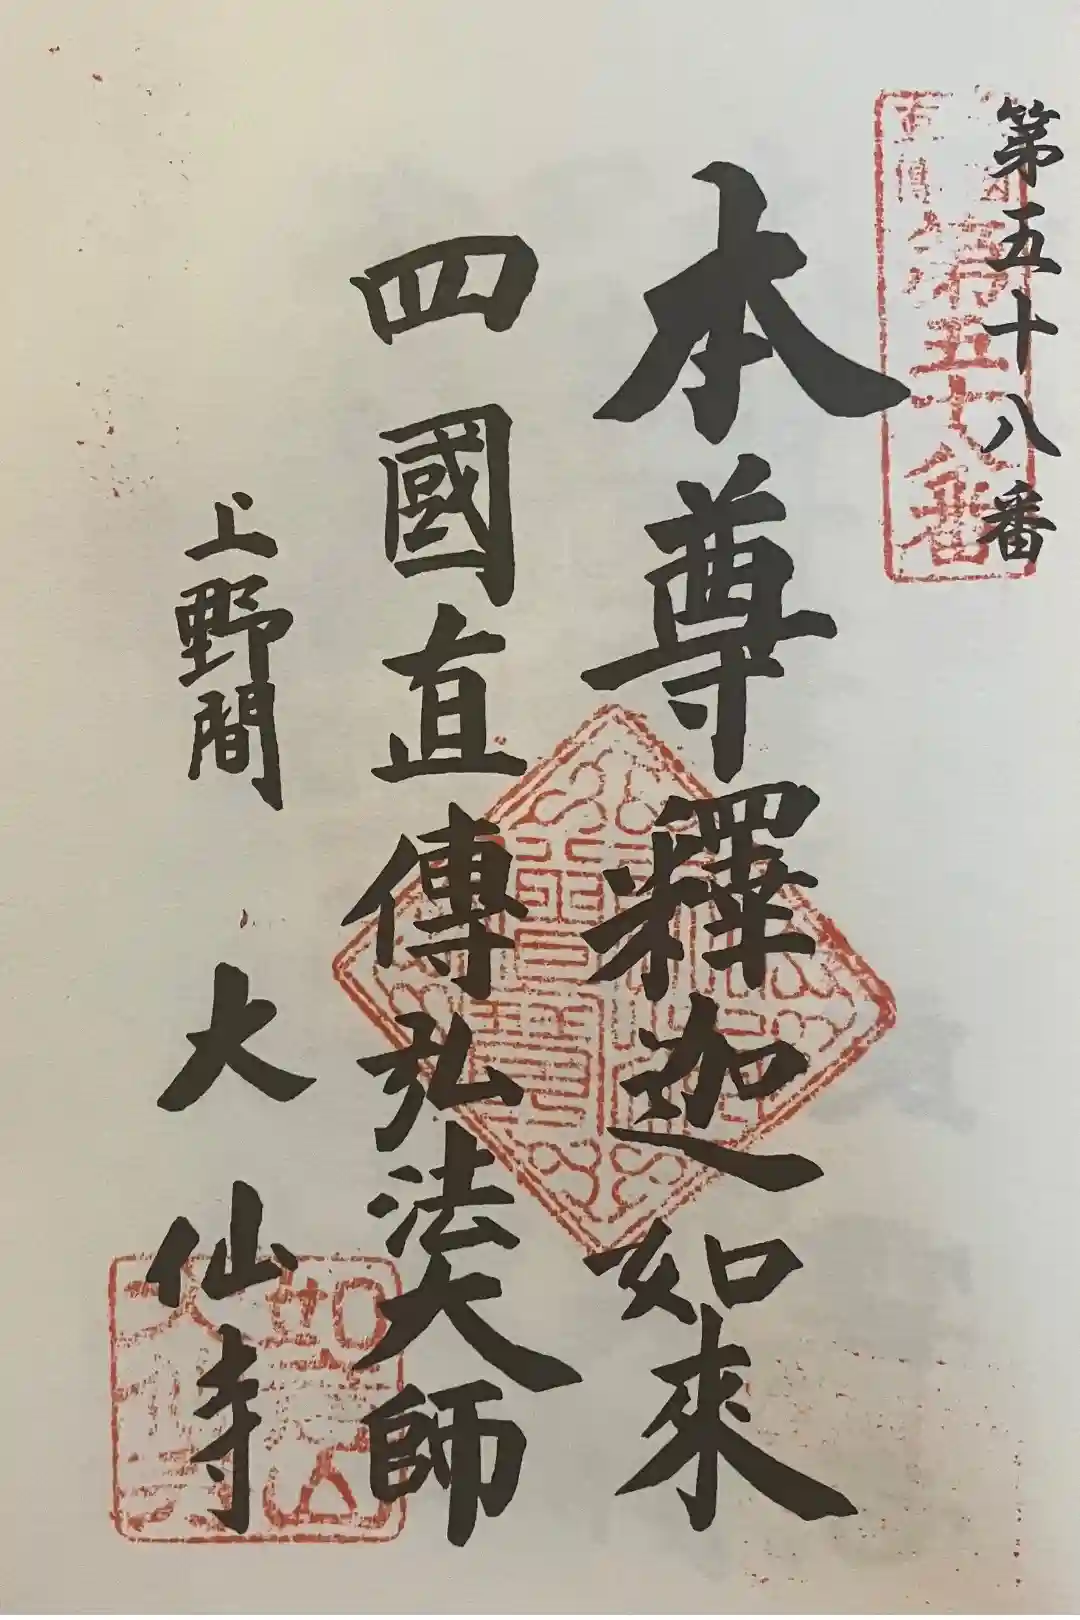 第五十八番
第五十八番
本尊釋迦如來
四國直傳弘法大師
上野間
大仙寺